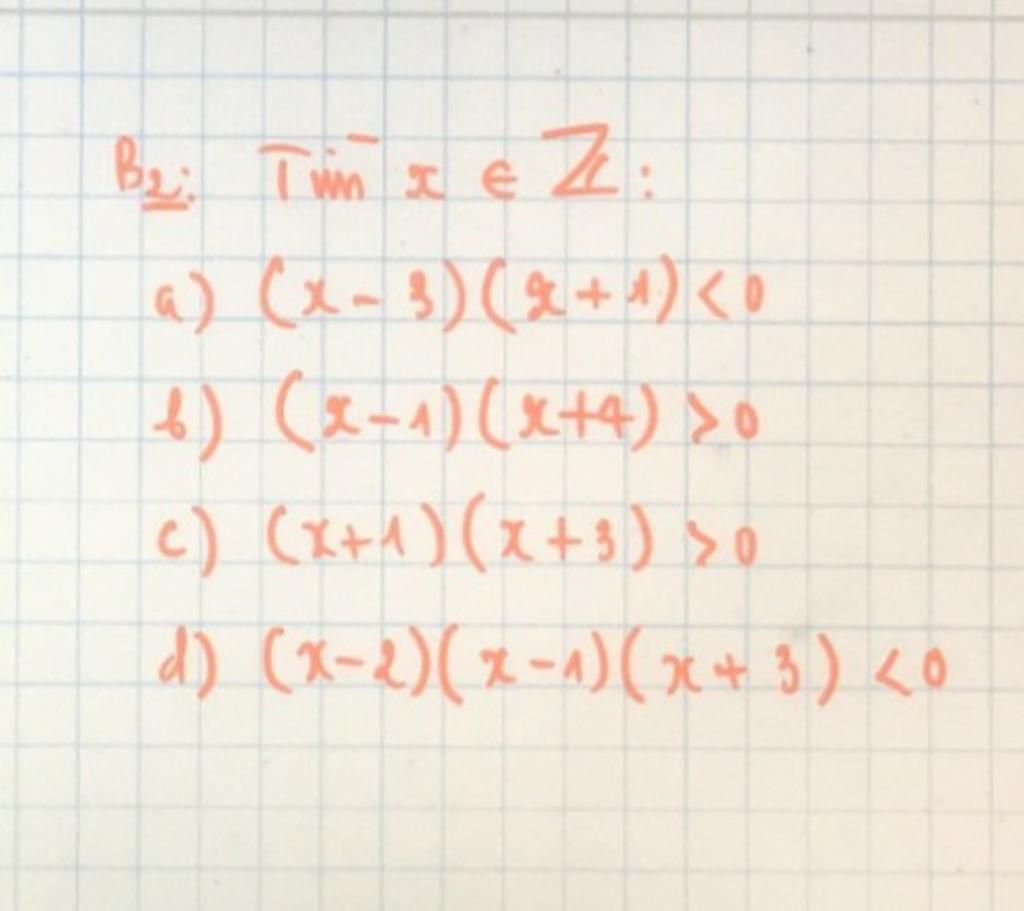 B2: Tìm x ∈ ℤ:
a) (x - 3)(x + 1) < 0
b) (x - 1)(x + 4) > 0
c) (x + 1)(x + 3) > 0
d) (x - 2)(x - 1)(x + 3) < 0